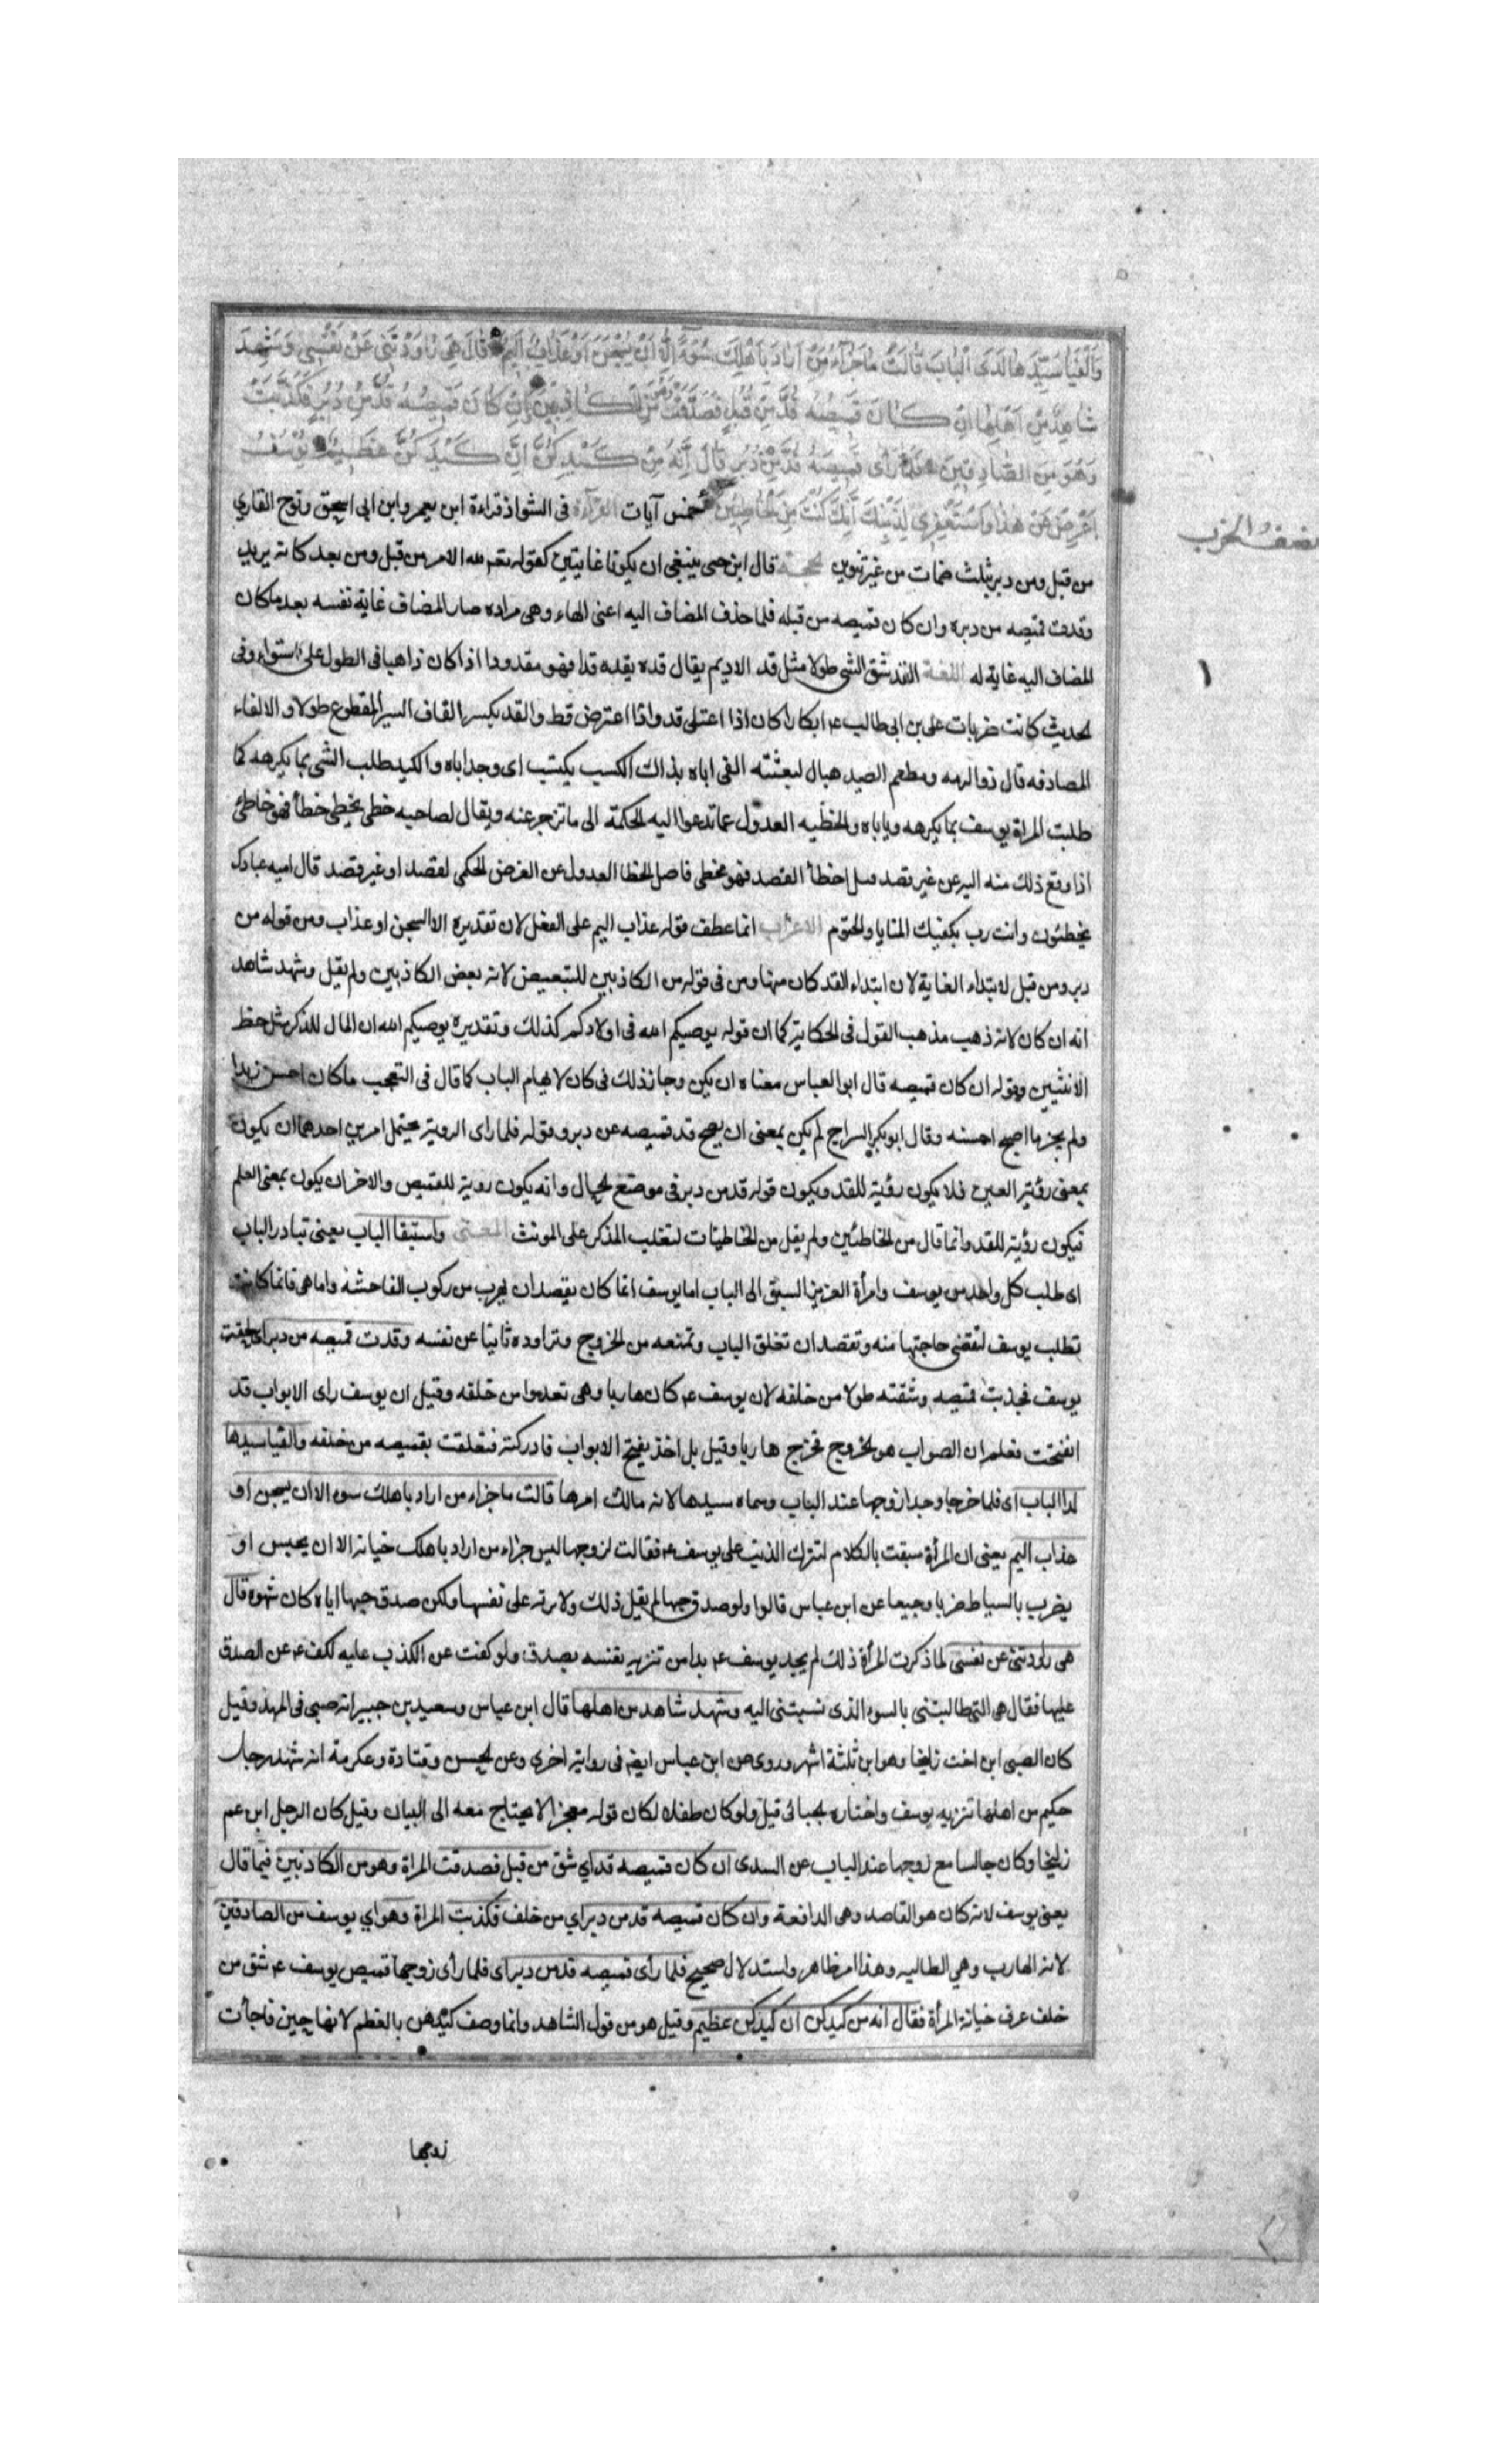 وَأَلْفَيَا سَيِّدَهَا لَدَى الْبَابِ قَالَتْ مَا جَزَاءُ مَنْ أَرَادَ بِأَهْلِكَ سُوءًا إِلَّا أَنْ يُسْجَنَ أَوْ عَذَابٌ أَلِيمٌ قَالَ هِيَ رَاوَدَتْنِي عَنْ نَفْسِي وَشَهِدَ
شَاهِدٌ مِنْ أَهْلِهَا إِنْ كَانَ قَمِيصُهُ قُدَّ مِنْ قُبُلٍ فَصَدَقَتْ وَهُوَ مِنَ الْكَاذِبِينَ وَإِنْ كَانَ قَمِيصُهُ قُدَّ مِنْ دُبُرٍ فَكَذَبَتْ
وَهُوَ مِنَ الصَّادِقِينَ فَلَمَّا رَأَى قَمِيصَهُ قُدَّ مِنْ دُبُرٍ قَالَ إِنَّهُ مِنْ كَيْدِكُنَّ إِنَّ كَيْدَكُنَّ عَظِيمٌ يُوسُفُ
أَعْرِضْ عَنْ هَذَا وَاسْتَغْفِرِي لِذَنْبِكِ إِنَّكِ كُنْتِ مِنَ الْخَاطِئِينَ خمس آيات القراءة فى الشواذ قراءة ابن يعمر وابن ابى اسحق ونوح القاري
من قبل ومن دبر بثلث ضمات من غير تنوين الحجة قال ابن جنى ينبغى ان يكونا غايتين كقوله تعه لله الامر من قبل ومن بعد كانه يريد
وقدت قميصه من دبره وان كان قميصه من قبله فلما حذف المضاف اليه اعنى الهاء وهى مراده صار المضاف غاية نفسه بعد ما كان
المضاف اليه غاية له اللغة القد شق الشى طولا مثل قد الاديم يقال قده يقده قدا فهو مقدود اذا كان ذاهبا فى الطول على استواء وفى
الحديث كانت ضربات على بن ابى طالب عم ابكارا كان اذا اعتلى قد واذا اعترض قط والقد بكسر القاف السير المقطوع طولا والالفاء
المصادفه قال ذو الرمه ومطعم الصيد هبال لبغيته الفى اباه بذاك الكسب يكتسب اى وجد اباه والكيد طلب الشى بما يكرهه كما
طلبت المراة يوسف بما يكرهه وياباه والخطيه العدول عما تدعوا اليه الحكمة الى ما تزجر عنه ويقال لصاحبه خطى يخطى خطأ فهو خاطئ
اذا وقع ذلك منه عن غير قصد اخطأ القصد فهو مخطى فاصل الخطا العدول عن الغرض الحكمى لقصد او غير قصد قال اميه عبادك
يخطئون وانت رب بكفيك المنايا والحتوم الاعراب انما عطف قوله عذاب اليم على الفعل لان تقديره الا السجن او عذاب ومن قوله من
دبر ومن قبل لابتداء الغاية لان ابتداء القد كان منها ومن فى قوله من الكاذبين للتبعيض لانه بعض الكاذبين ولم يقل وشهد شاهد
انه ان كان لانه ذهب مذهب القول فى الحكاية كما ان قوله يوصيكم الله فى اولادكم كذلك وتقديره يوصيكم الله ان المال للذكر مثل حظ
الانثيين وقوله ان كان قميصه قال ابو العباس معناه ان يكن وجاز ذلك فى كان لانها ام الباب كما قال فى التعجب ما كان احسن زيدا
ولم يجز ما اصبح احسنه وقال ابو بكر السراج لم يكن بمعنى ان يصح قد قميصه عن دبر وقوله فلما راى الروية يحتمل امرين احدهما ان يكون
بمعنى رؤية العين فلا يكون رؤية للقد ويكون قوله قد من دبر فى موضع الحال وانه يكون روية للقميص والاخر ان يكون بمعنى العلم
فيكون رؤية للقد وانما قال من الخاطئين ولم يقل من الخاطيات لتغلب المذكر على المونث المعنى واستبقا الباب يعنى تبادر الباب
اى طلب كل واحد من يوسف وامرأة العزيز السبق الى الباب اما يوسف انما كان يقصد ان يهرب من ركوب الفاحشة واما هى فانما كانت
تطلب يوسف لتقضى حاجتها منه وتقصد ان تغلق الباب وتمنعه من الخروج وتراوده ثانيا عن نفسه وقدت قميصه من دبر اى لحقت
يوسف فجذبت قميصه وشقته طولا من خلفه لان يوسف عم كان هاربا وهى تعدوا من خلفه وقيل ان يوسف راى الابواب قد
انفتحت فعلم ان الصواب هو الخروج فخرج هاربا وقيل بل اخذ يفتح الابواب فادركته فتعلقت بقميصه من خلفه والفيا سيدها
لدا الباب اى فلما خرجا وجدا زوجها عند الباب وسماه سيدها لانه مالك امرها قالت ما جزاء من اراد باهلك سوء الا ان يسجن او
عذاب اليم يعنى ان المرأة سبقت بالكلام لتترك الذنب على يوسف عم فقالت لزوجها ليس جزاء من اراد باهلك خيانة الا ان يحبس او
يضرب بالسياط ضربا وجيعا عن ابن عباس قالوا ولو صدق حبها لم يقل ذلك ولاثرته على نفسها ولكن صدق حبها اياه كان شهوه قال
هى راودتنى عن نفسى لما ذكرت المرأة ذلك لم يجد يوسف عم بدا من تنزيه نفسه بصدق ولو كفت عن الكذب عليه لكف عم عن الصدق
عليها فقال هى التى طالبتنى بالسوء الذى نسبتنى اليه وشهد شاهد من اهلها قال ابن عباس وسعيد بن جبير انه صبى فى المهد وقيل
كان الصبى ابن اخت زليخا وهو ابن ثلثة اشهر وروى عن ابن عباس ايضه فى رواية اخرى وعن الحسن وقتادة وعكرمة انه شهد رجل
حكيم من اهلها تنزيه يوسف واختاره الجبائى قيل ولو كان طفلا لكان قوله معجزا لا يحتاج معه الى البيان وقيل كان الرجل ابن عم
زليخا وكان جالسا مع زوجها عند الباب عن السدى ان كان قميصه قد اي شق من قبل فصدقت المراة وهو من الكاذبين فيما قال
يعنى يوسف لانه كان هو القاصد وهى الدافعة وان كان قميصه قد من دبر اي من خلف فكذبت المراة وهو اي يوسف من الصادقين
لانه الهارب وهي الطالبه وهذا امر ظاهر واستدلال صحيح فلما رأى قميصه قد من دبر اى فلما رأى زوجها قميص يوسف عم شق من
خلف عرف خيانة المرأة فقال انه من كيدكن ان كيدكن عظيم وقيل هو من قول الشاهد وانما وصف كيدهن بالعظم لانها حين فاجأت
زوجها
نصف الحزب
١